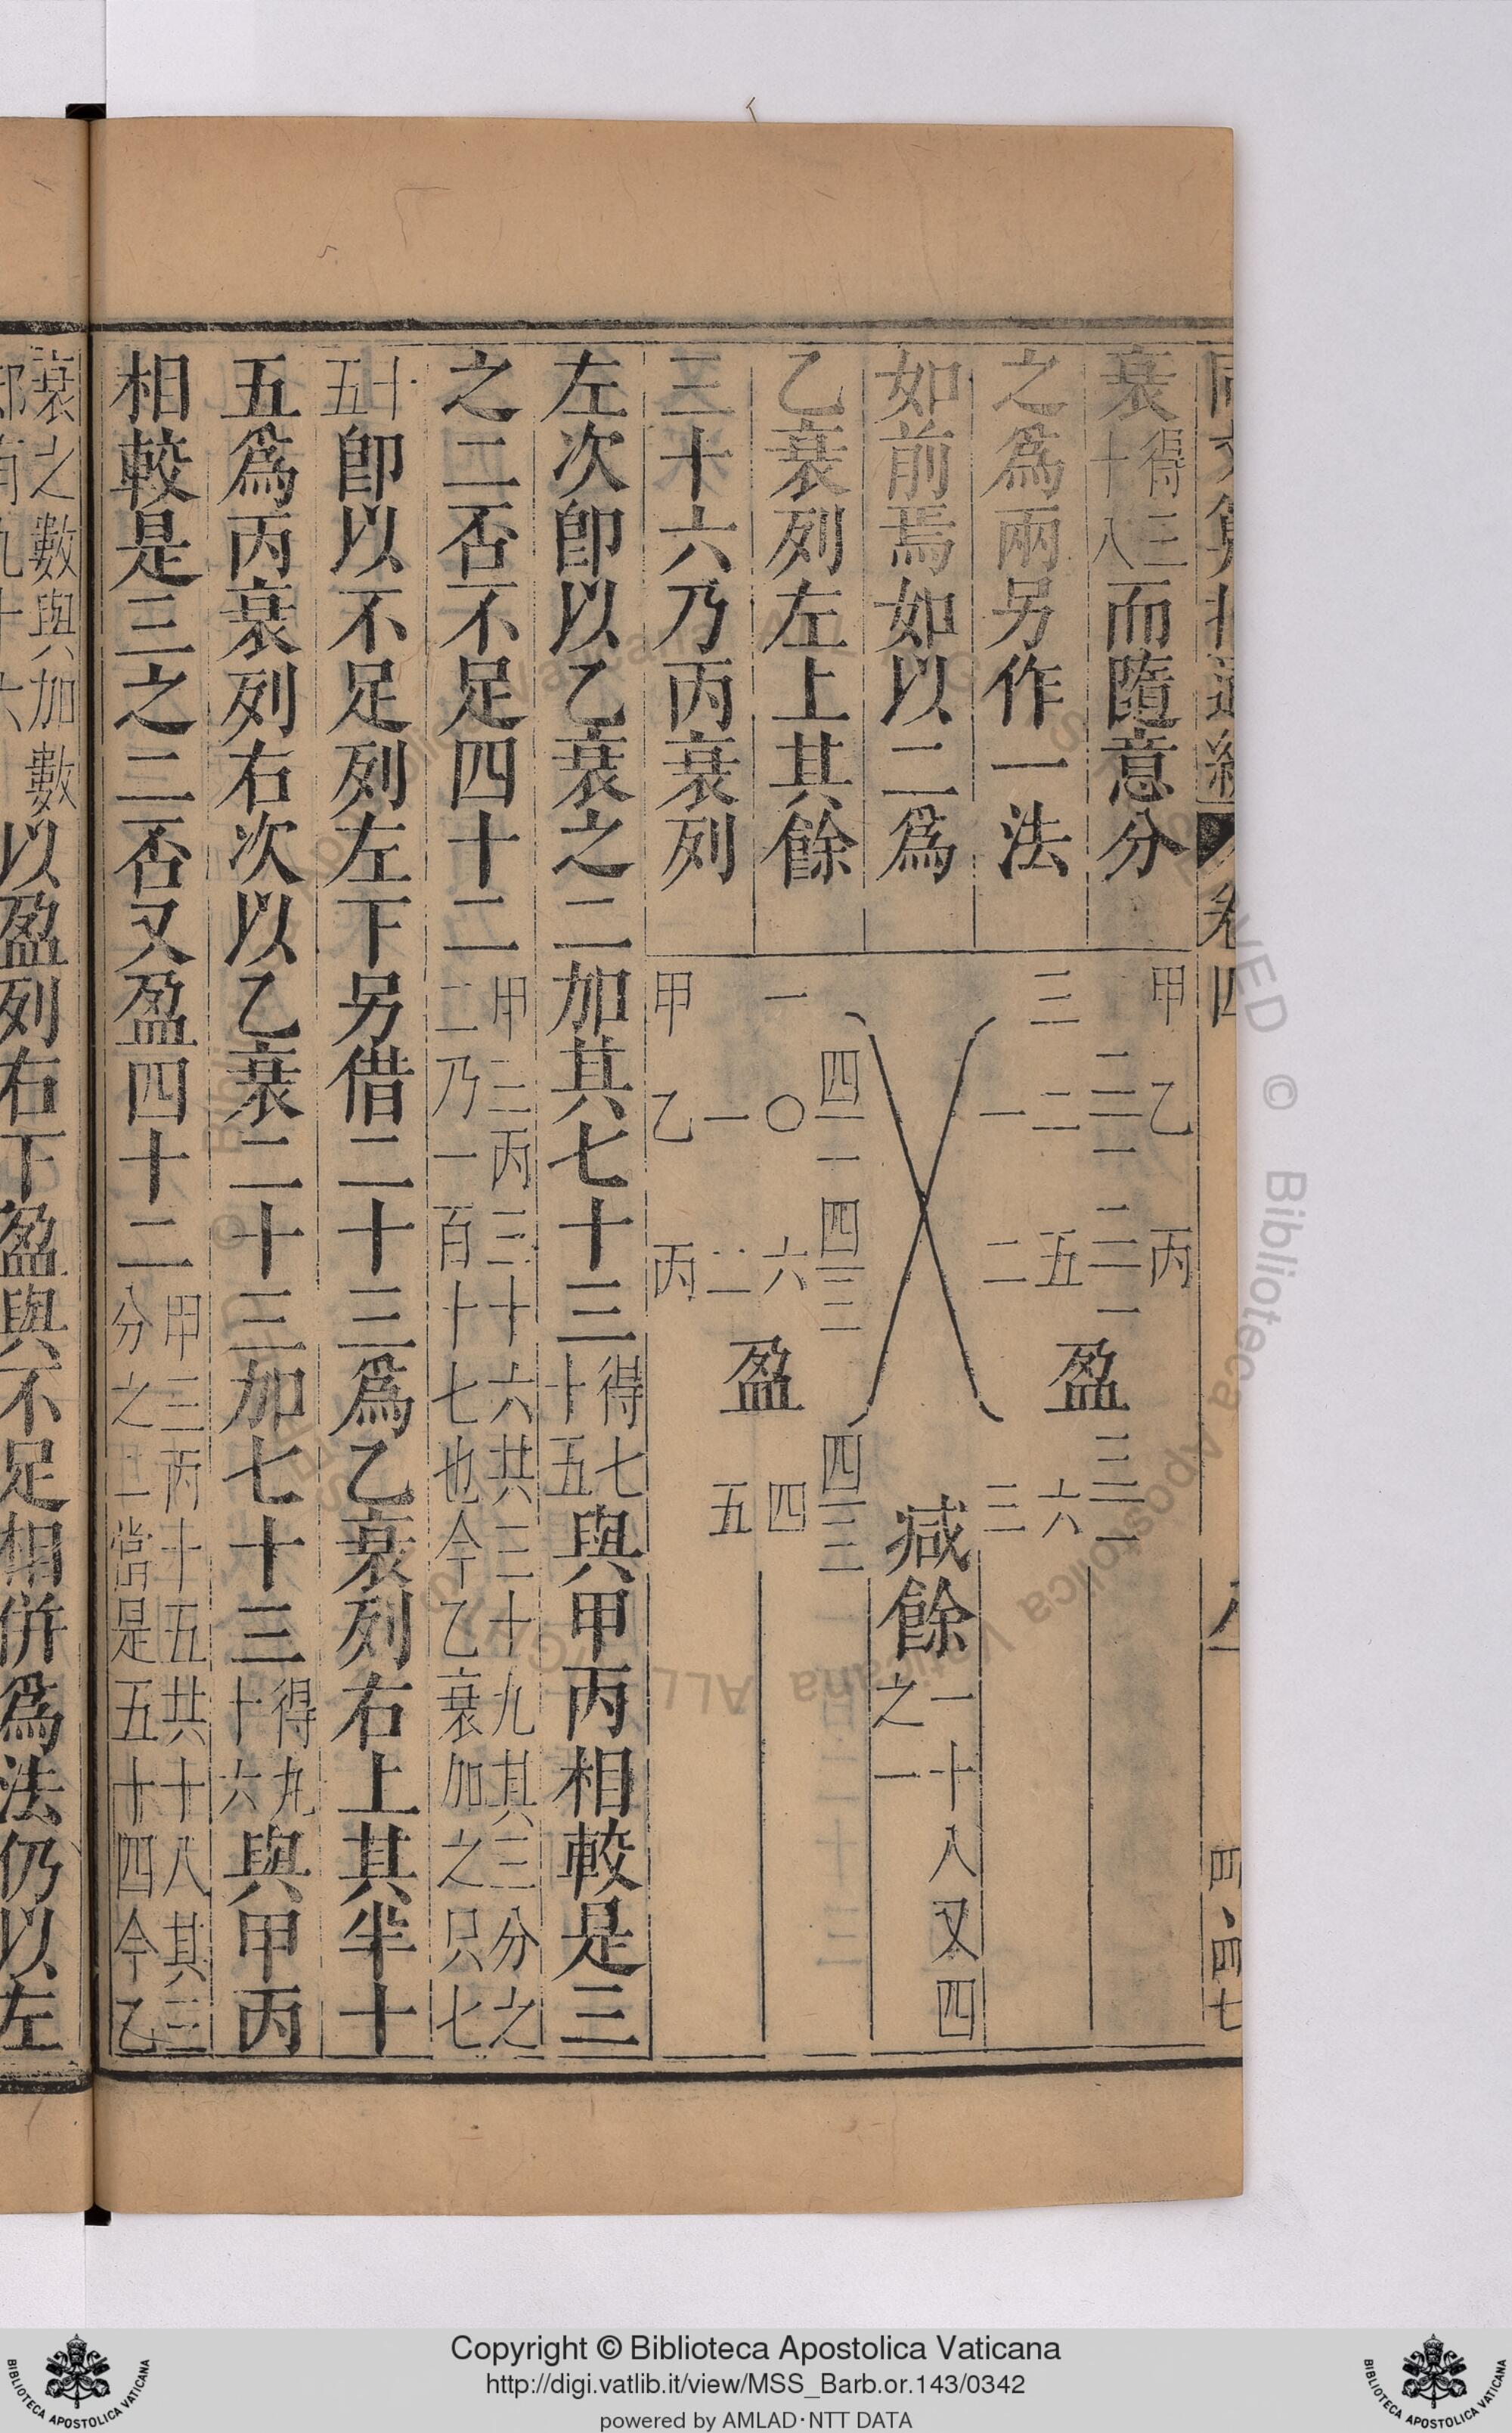 衰得三十八而隨意分
之爲兩另作一法
如前焉如以二爲
乙衰列左上其餘
三十六乃丙衰列
甲 乙 丙
三 二 五 六
一 二 三
盈
減餘一十八又四之一
一 〇 六 四
一 二 五
盈
甲 乙 丙
左次卽以乙衰之二加其七十三得七十五與甲丙相較是三
之二否不足四十二甲三丙三十六共三十九其三分之二乃一百十七也今乙衰加之只七
十五卽以不足列左下另借二十三爲乙衰列右上其半十
五爲丙衰列右次以乙衰二十三加七十三得九十六與甲丙
相較是三之三否又盈四十二甲三丙十五共十八其三分之三當是五十四今乙
衰之數與加數郤有九十六以盈列右下盈與不足相併爲法仍以左
Copyright © Biblioteca Apostolica Vaticana
http://digi.vatlib.it/view/MSS_Barb.or.143/0342
powered by AMLAD·NTT DATA